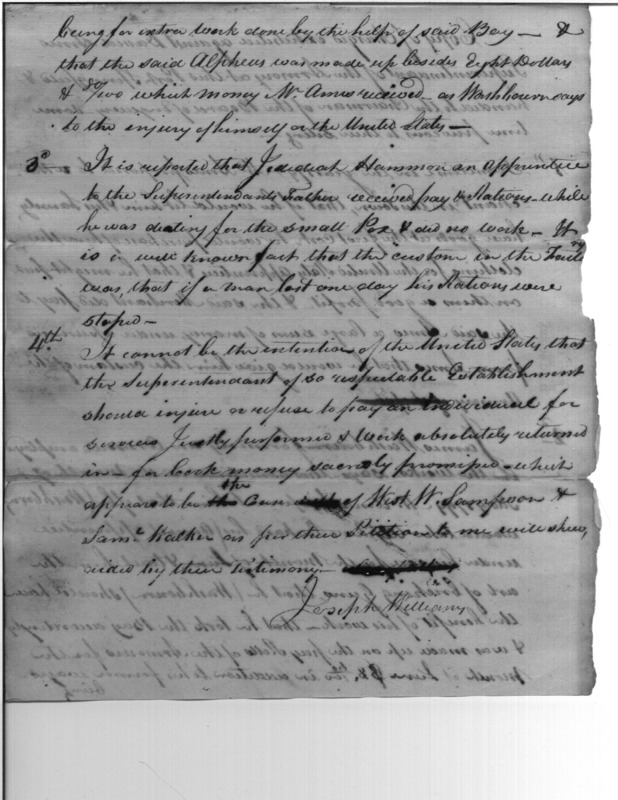 being for extra work done by the help of said Boy — &
that the said Alpheus was made up besides Eight Dollars
& 80/100 which money Mr. Ames received — as Washbourn says
to the injury of himself or the United States —
3d It is reported that Jedidiah Hammon an Apprentice
to the Superintendants Father received pay & Rations — while
he was dieting for the Small Pox & did no work — It
is a well known fact that the custom in the
was, that if a man lost one day his Rations were
stoped —
4th It cannot be the intention of the United States that
the Superintendant of so respectable Establishment
should injure or refuse to pay an individual for
services Justly performed & Work absolutely returned
in — for back money sacredly promised — which
appears to be the Case of West W. Sampson &
Saml Walker as per their Petition to me will shew,
aided by their testimony —
Joseph Williams